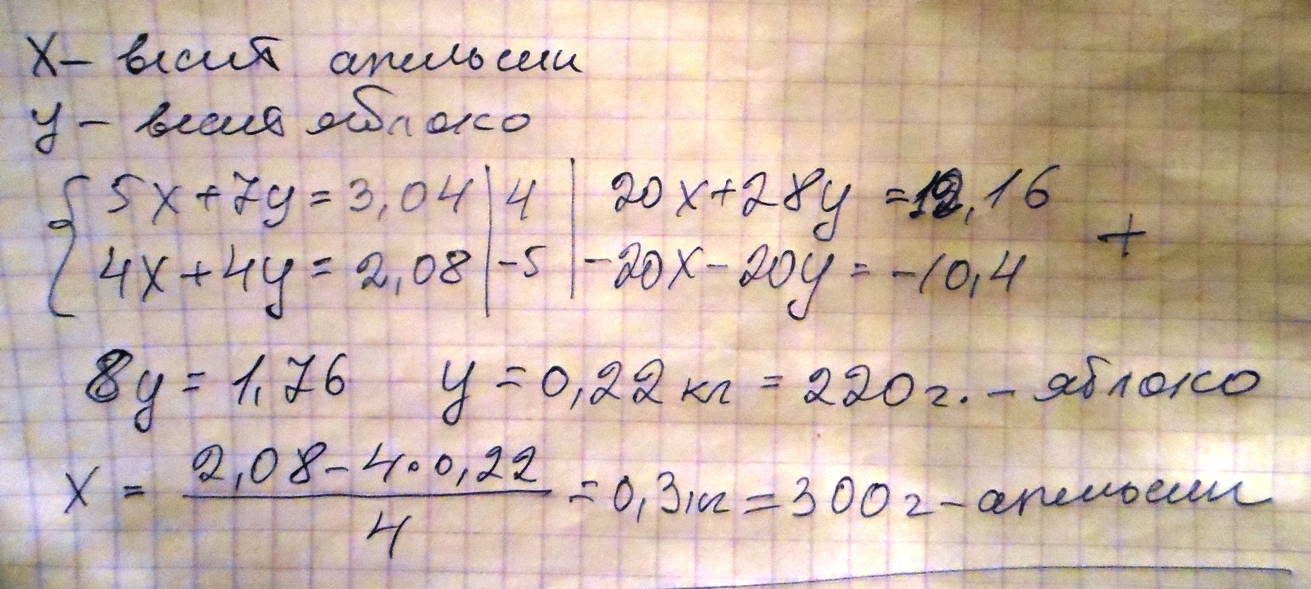 X – весит апельсин
y – весит яблоко
{ 5x+7y=3,04 | 4 | 20x+28y=12,16
4x+4y=2,08 | -5 | -20x-20y=-10,4 +
8y=1,76 y=0,22кг=220г. – яблоко
x = (2,08-4·0,22)/4 = 0,3кг=300г – апельсин